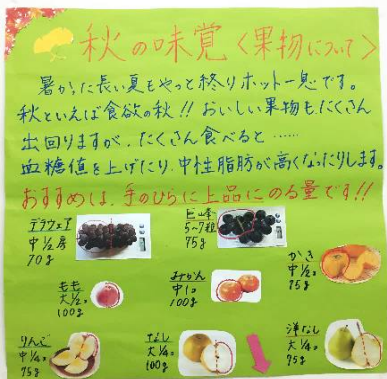 秋の味覚〈果物について〉
暑かった長い夏もやっと終りホット一息です。
秋といえば食欲の秋!!おいしい果物もたくさん
出回りますが、たくさん食べると……
血糖値を上げたり、中性脂肪が高くなったりします。
おすすめは、手のひらに上品にのる量です!!
デラウェア
中1/2房
70g
巨峰
5~7粒
75g
かき
中1/2コ
75g
もも
大1/2コ
100g
みかん
中1コ
100g
りんご
中1/4コ
75g
なし
大1/4コ
100g
洋なし
大1/4コ
75g